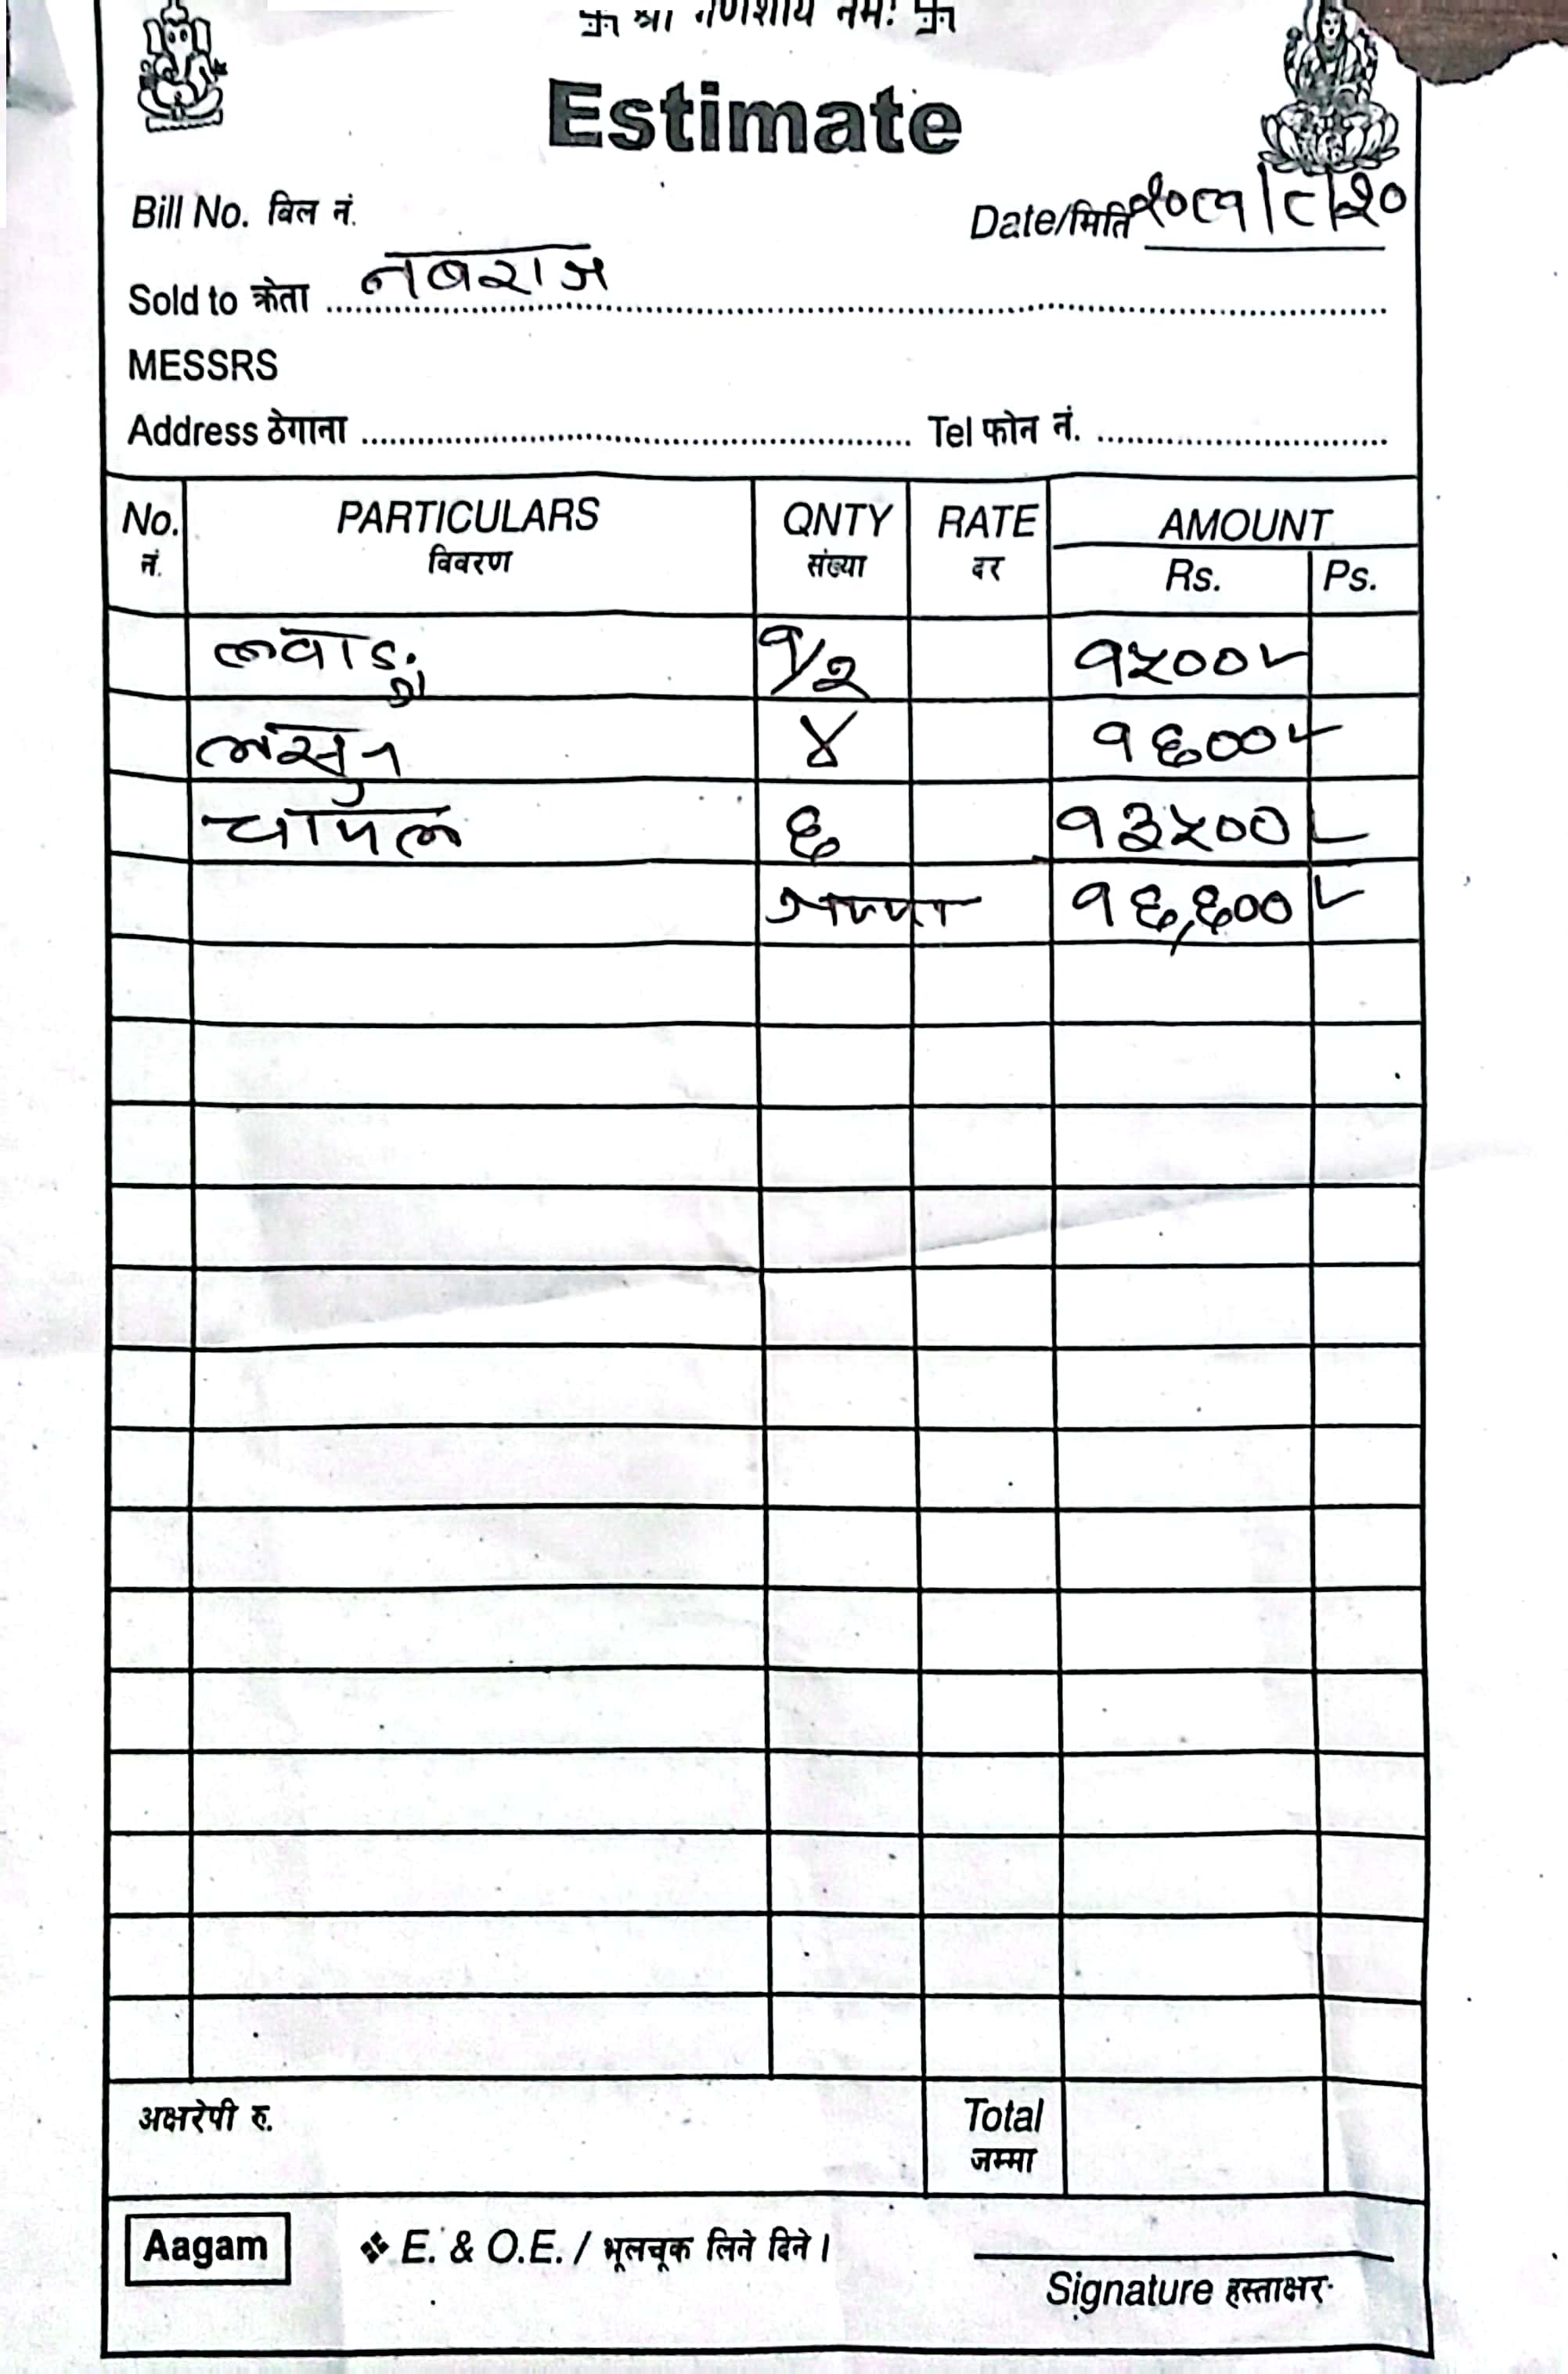 卐 श्री गणेशाय नमः 卐
Estimate
Bill No. बिल नं.
Date/मिति २०८१|८|२०
Sold to क्रेता नबराज
MESSRS
Address ठेगाना Tel फोन नं.
No. PARTICULARS QNTY RATE AMOUNT
नं. विवरण संख्या दर Rs. Ps.
ल्वाङ्ग १/२ १५००/-
लसुन ४ १६००/-
चामल ६ १३५००/-
जम्मा १६,६००/-
अक्षरेपी रु. Total
जम्मा
Aagam ❖ E. & O.E. / भूलचूक लिने दिने।
Signature हस्ताक्षर